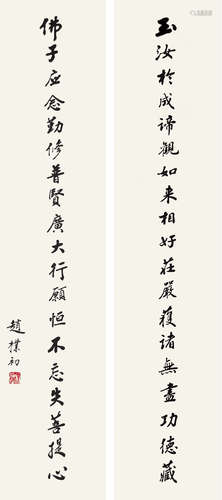 玉汝於成諦觀如来相好莊嚴獲諸無盡功德藏
佛子应念勤修普賢廣大行願恒不忘失菩提心
趙樸初